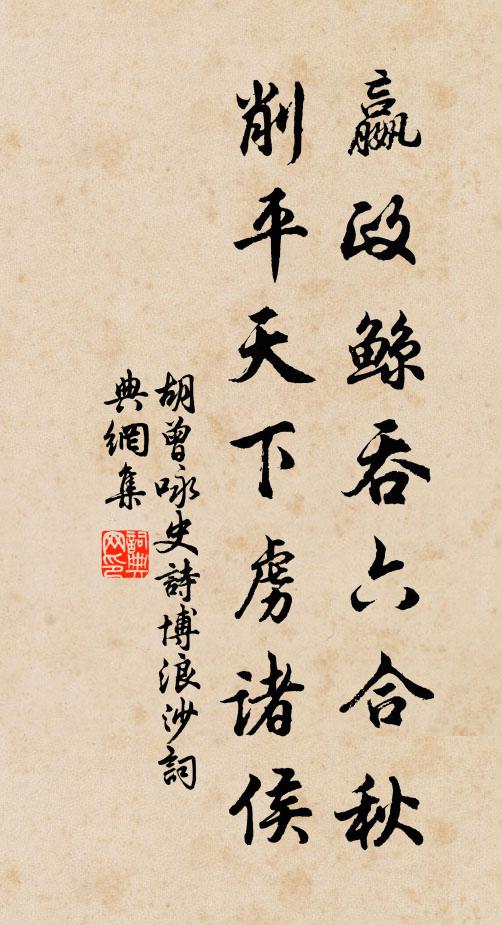 嬴政鲸吞六合秋
削平天下虏诸侯
胡曾咏史詩博浪沙詞
典網集
詞典網印